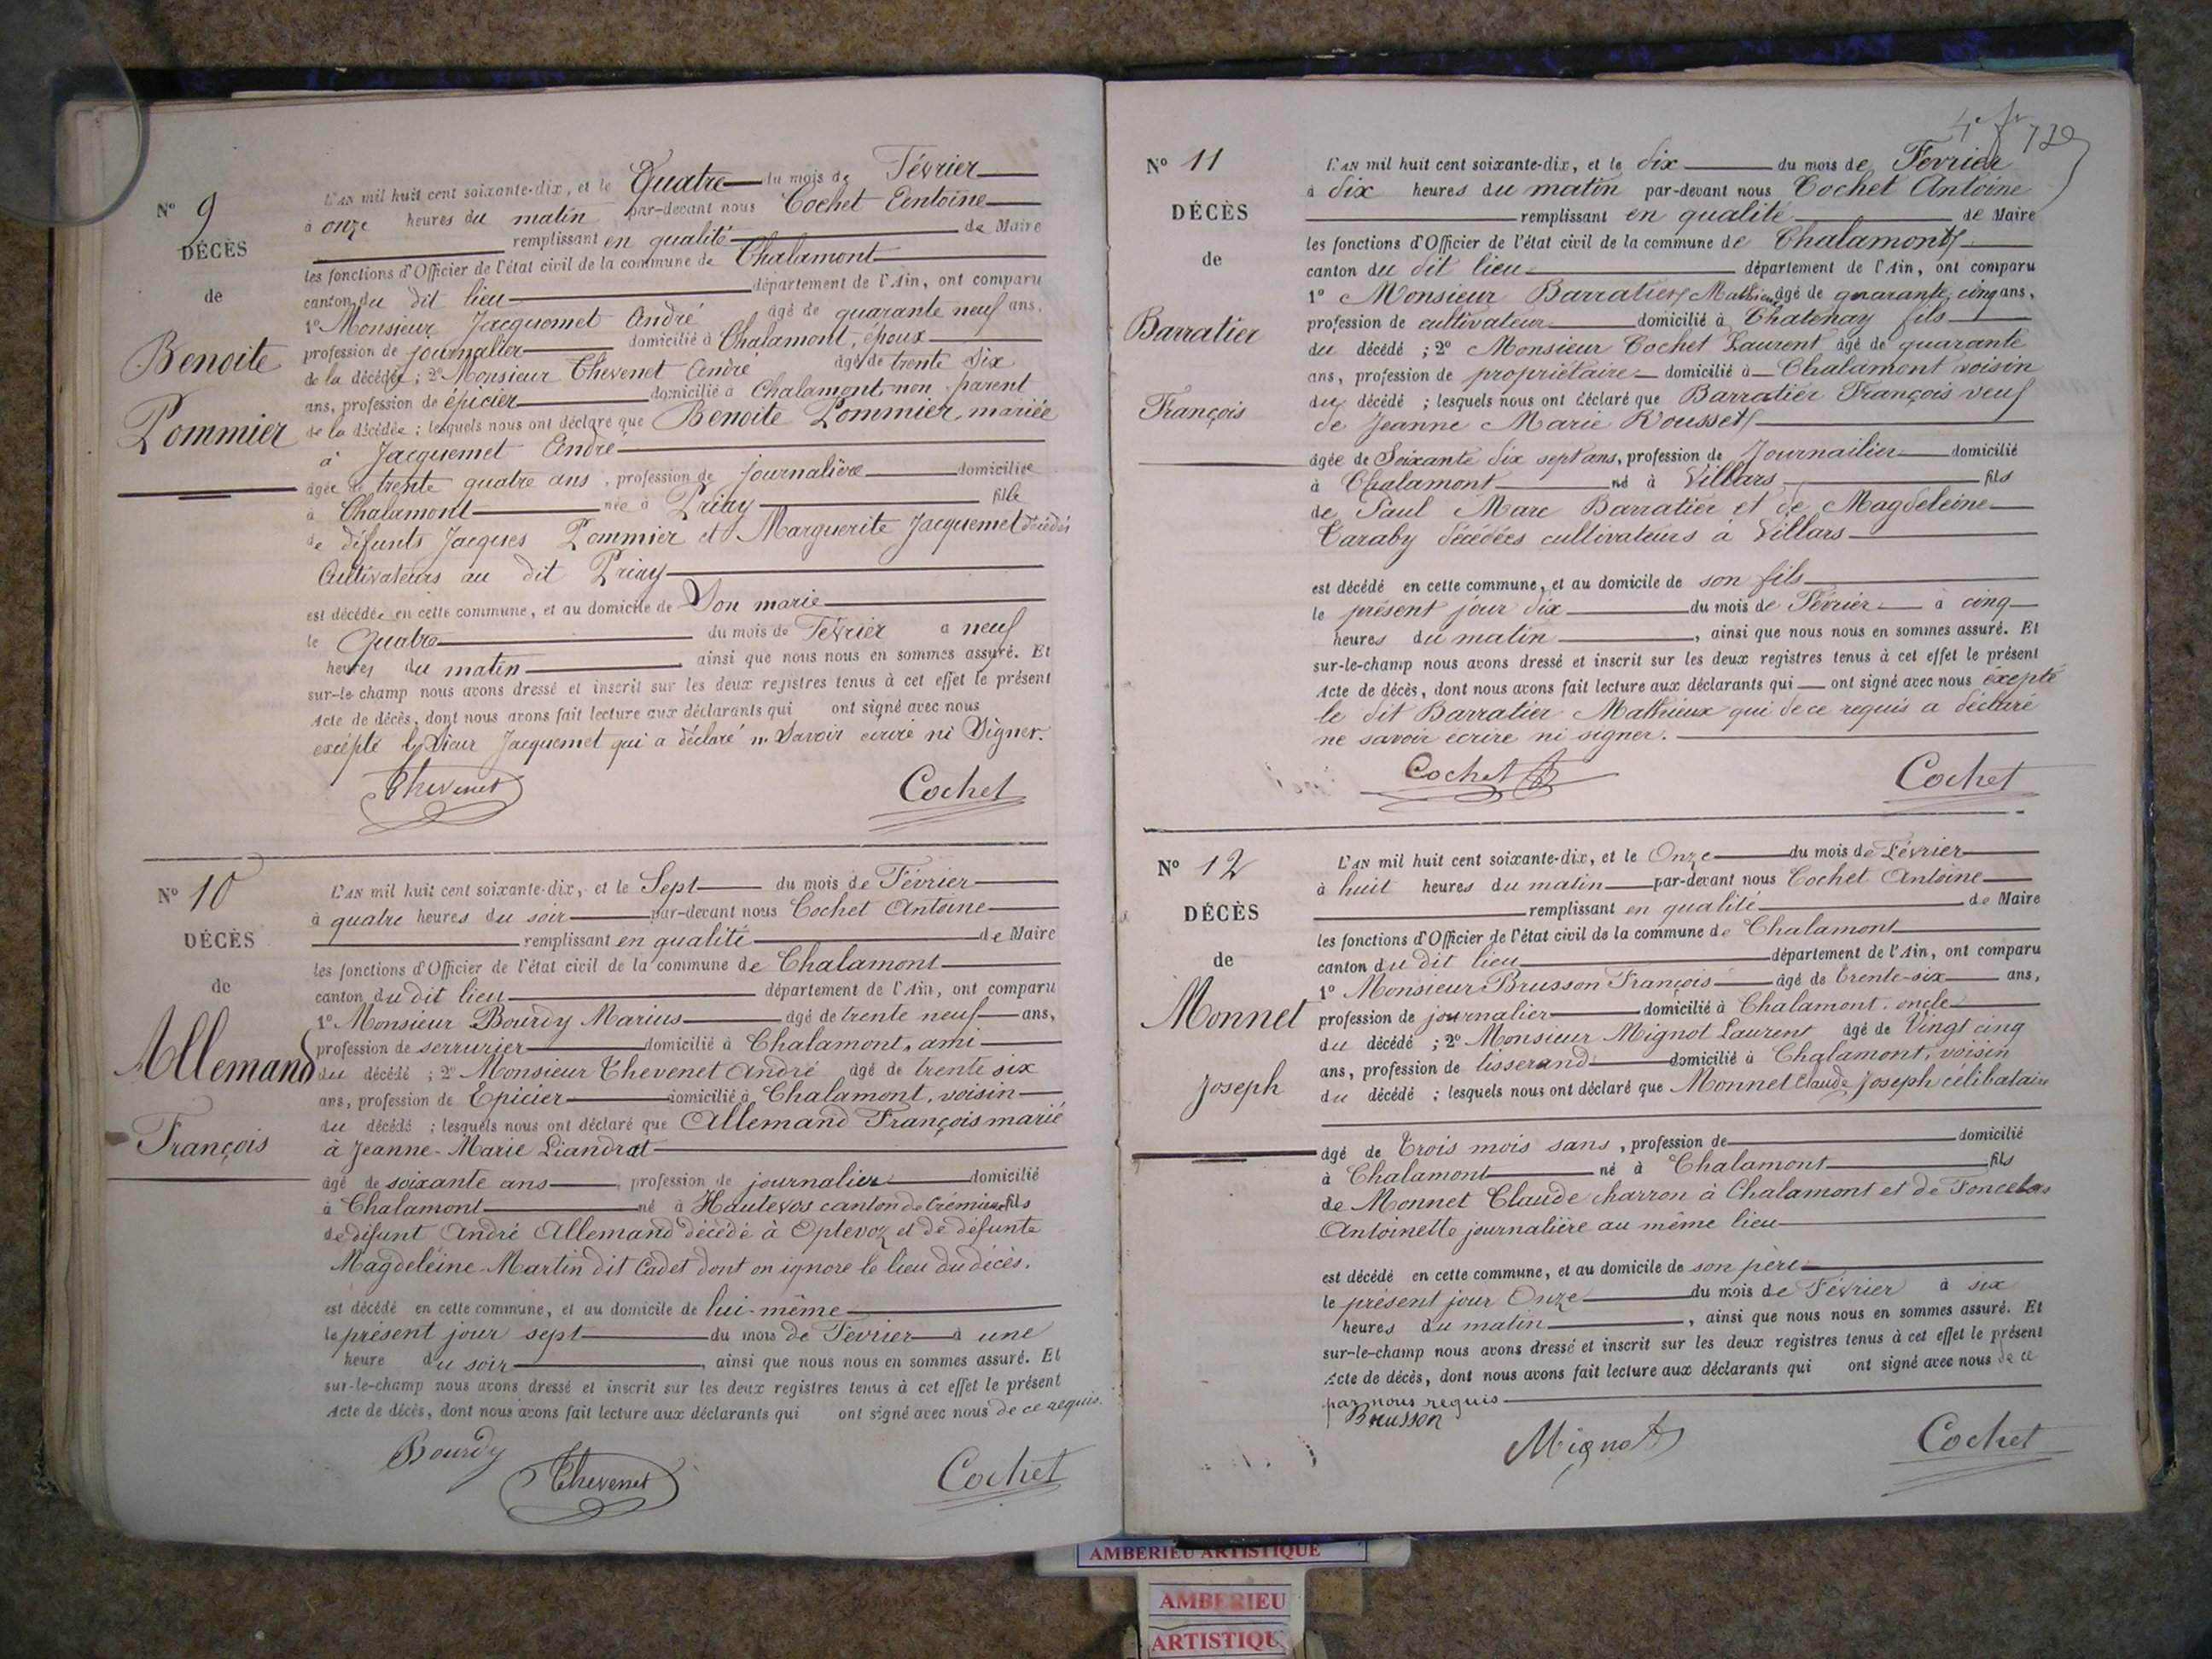 N° 9
DÉCÈS
de
Benoite
Pommier
L'AN mil huit cent soixante-dix, et le Quatre du mois de Février
à onze heures du matin par-devant nous Cochet Antoine
remplissant en qualité de Maire
les fonctions d'Officier de l'état civil de la commune de Chalamont
canton du dit lieu département de l'Ain, ont comparu
1° Monsieur Jacquemet André âgé de quarante neuf ans,
profession de journalier domicilié à Chalamont, époux
de la décédée ; 2° Monsieur Thévenet André âgé de trente Six
ans, profession de épicier domicilié à Chalamont, non parent
de la décédée ; lesquels nous ont déclaré que Benoite Pommier, mariée
à Jacquemet André
âgée de trente quatre ans, profession de journalière domiciliée
à Chalamont née à Priay fille
de défunts Jacques Pommier et Marguerite Jacquemet décédés
Cultivateurs au dit Priay
est décédée en cette commune, et au domicile de Son marie
le Quatre du mois de Février a neuf
heures du matin ainsi que nous nous en sommes assuré. Et
sur-le-champ nous avons dressé et inscrit sur les deux registres tenus à cet effet le présent
Acte de décès, dont nous avons fait lecture aux déclarants qui ont signé avec nous
excépté le Sieur Jacquemet qui a déclaré ne Savoir écrire ni Signer.
Thevenet Cochet
N° 10
DÉCÈS
de
Allemand
François
L'AN mil huit cent soixante-dix, et le Sept du mois de Février
à quatre heures du soir par-devant nous Cochet Antoine
remplissant en qualité de Maire
les fonctions d'Officier de l'état civil de la commune de Chalamont
canton du dit lieu département de l'Ain, ont comparu
1° Monsieur Bourdy Marius âgé de trente neuf ans,
profession de serrurier domicilié à Chalamont, ami
du décédé ; 2° Monsieur Thevenet André âgé de trente six
ans, profession de Epicier domicilié à Chalamont, voisin
du décédé ; lesquels nous ont déclaré que Allemand François marié
à Jeanne-Marie Liandrat
âgé de soixante ans, profession de journalier domicilié
à Chalamont né à Hautevos canton de Crémieux fils
de défunt André Allemand décédé à Optevoz et de défunte
Magdeleine Martin dit Cadet dont on ignore le lieu du décès.
est décédé en cette commune, et au domicile de lui-même
le présent jour sept du mois de Février à une
heure du soir, ainsi que nous nous en sommes assuré. Et
sur-le-champ nous avons dressé et inscrit sur les deux registres tenus à cet effet le présent
Acte de décès, dont nous avons fait lecture aux déclarants qui ont signé avec nous de ce requis.
Bourdy Thevenet Cochet
N° 11
DÉCÈS
de
Barratier
François
L'AN mil huit cent soixante-dix, et le dix du mois de Fevrier
à dix heures du matin par-devant nous Cochet Antoine
remplissant en qualité de Maire
les fonctions d'Officier de l'état civil de la commune de Chalamont
canton du dit lieu département de l'Ain, ont comparu
1° Monsieur Barratier Mathieux âgé de quarante cinq ans,
profession de cultivateur domicilié à Chatenay fils
du décédé ; 2° Monsieur Cochet Laurent âgé de quarante
ans, profession de propriétaire domicilié à Chalamont voisin
du décédé ; lesquels nous ont déclaré que Barratier François veuf
de Jeanne Marie Rousset
âgée de Soixante dix sept ans, profession de Journailier domicilié
à Chalamont né à Villars fils
de Paul Marc Barratier et de Magdeleine
Taraby décédées cultivateurs à Villars
est décédé en cette commune, et au domicile de son fils
le présent jour dix du mois de Février à cinq
heures du matin, ainsi que nous nous en sommes assuré. Et
sur-le-champ nous avons dressé et inscrit sur les deux registres tenus à cet effet le présent
Acte de décès, dont nous avons fait lecture aux déclarants qui ont signé avec nous éxepté
le dit Barratier Mathieux qui de ce requis a déclaré
ne savoir écrire ni signer.
Cochet Cochet
N° 12
DÉCÈS
de
Monnet
Joseph
L'AN mil huit cent soixante-dix, et le Onze du mois de Février
à huit heures du matin par-devant nous Cochet Antoine
remplissant en qualité de Maire
les fonctions d'Officier de l'état civil de la commune de Chalamont
canton du dit lieu département de l'Ain, ont comparu
1° Monsieur Brusson François âgé de trente-six ans,
profession de journalier domicilié à Chalamont, oncle
du décédé ; 2° Monsieur Mignot Laurent âgé de Vingt cinq
ans, profession de tisserand domicilié à Chalamont, voisin
du décédé ; lesquels nous ont déclaré que Monnet Claude Joseph célibataire
âgé de Trois mois sans, profession de domicilié
à Chalamont né à Chalamont fils
de Monnet Claude charron à Chalamont et de
Antoinette journalière au même lieu
est décédé en cette commune, et au domicile de son père
le présent jour Onze du mois de Février à six
heures du matin, ainsi que nous nous en sommes assuré. Et
sur-le-champ nous avons dressé et inscrit sur les deux registres tenus à cet effet le présent
Acte de décès, dont nous avons fait lecture aux déclarants qui ont signé avec nous de ce
par nous requis
Brusson Mignot Cochet
AMBERIEU ARTISTIQUE
AMBERIEU
ARTISTIQU